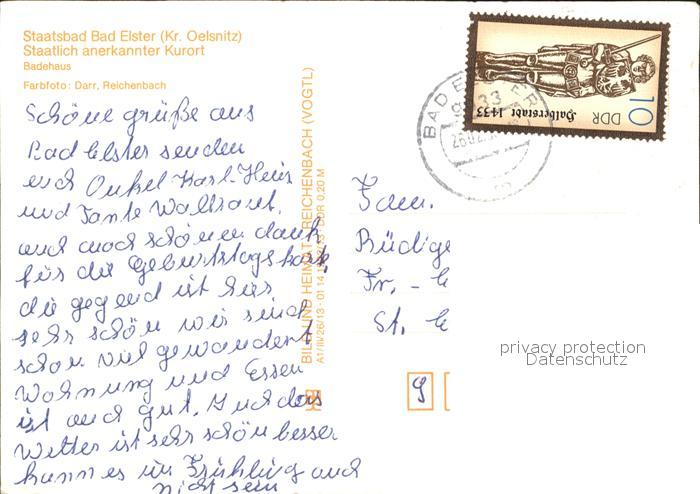 Staatsbad Bad Elster (Kr. Oelsnitz)
Staatlich anerkannter Kurort
Badehaus
Farbfoto: Darr, Reichenbach
Schöne grüße aus
Bad Elster senden
euch Onkel Karl-Heinz
und Tante Waltraut.
und auch schönen dank
für die Geburtstagskarte,
die gegend ist hier
sehr schön wir sind
schon viel gewandert
Wohnung und Essen
ist auch gut. Und das
Wetter ist sehr schön besser
kann es im Frühling auch
nicht sein
BILD UND HEIMAT REICHENBACH (VOGTL)
A1/III/26/13 01 14 DDR 0,20 M
BAD ELSTER
9933
Halberstadt 1433
DDR
10
Fam.
Rüdige
Fr. -
St.
9
privacy protection
Datenschutz